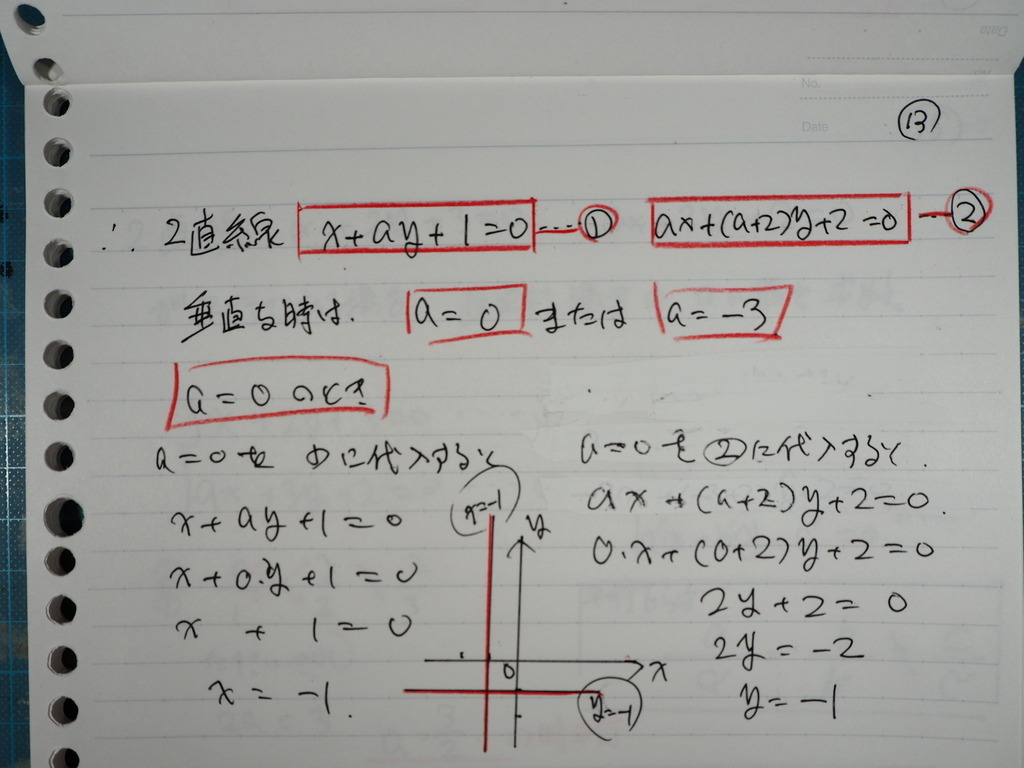 No.
Date
⑬
∴ 2直線 x+ay+1=0 ---① ax+(a+2)y+2=0 ---②
垂直な時は. a=0 または a=-3
a=0 のとき
a=0を ①に代入すると
x+ay+1=0
x+0.y+1=0
x + 1=0
x=-1.
x=-1
y
0
x
y=-1
a=0を②に代入すると.
ax+(a+2)y+2=0.
0.x+(0+2)y+2=0
2y+2=0
2y=-2
y=-1